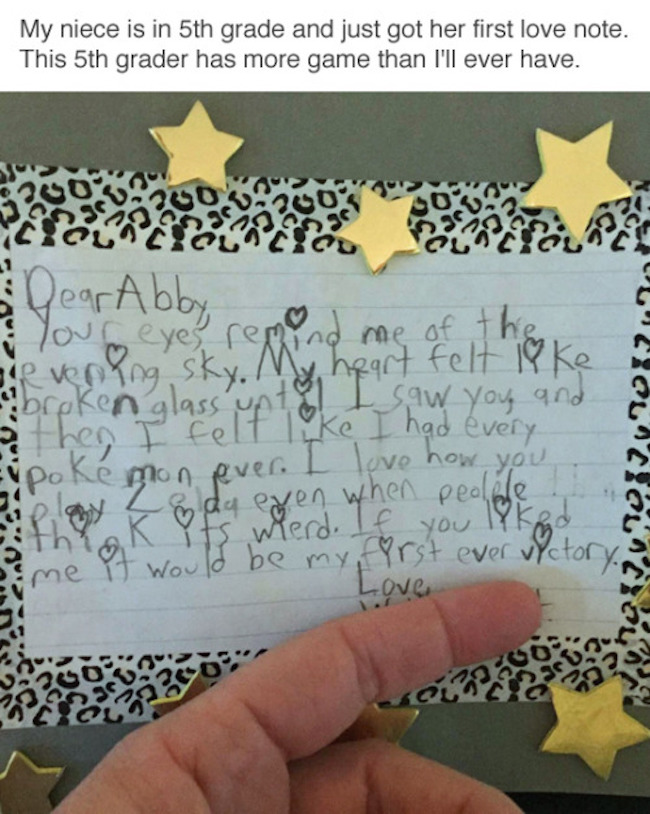 My niece is in 5th grade and just got her first love note.
This 5th grader has more game than I'll ever have.
Dear Abby,
Your eyes remind me of the
evening sky. My heart felt like
broken glass until I saw you and
then I felt like I had every
pokemon ever. I love how you
play Zelda even when peolple
think its wierd. If you liked
me it would be my first ever victory.
Love,